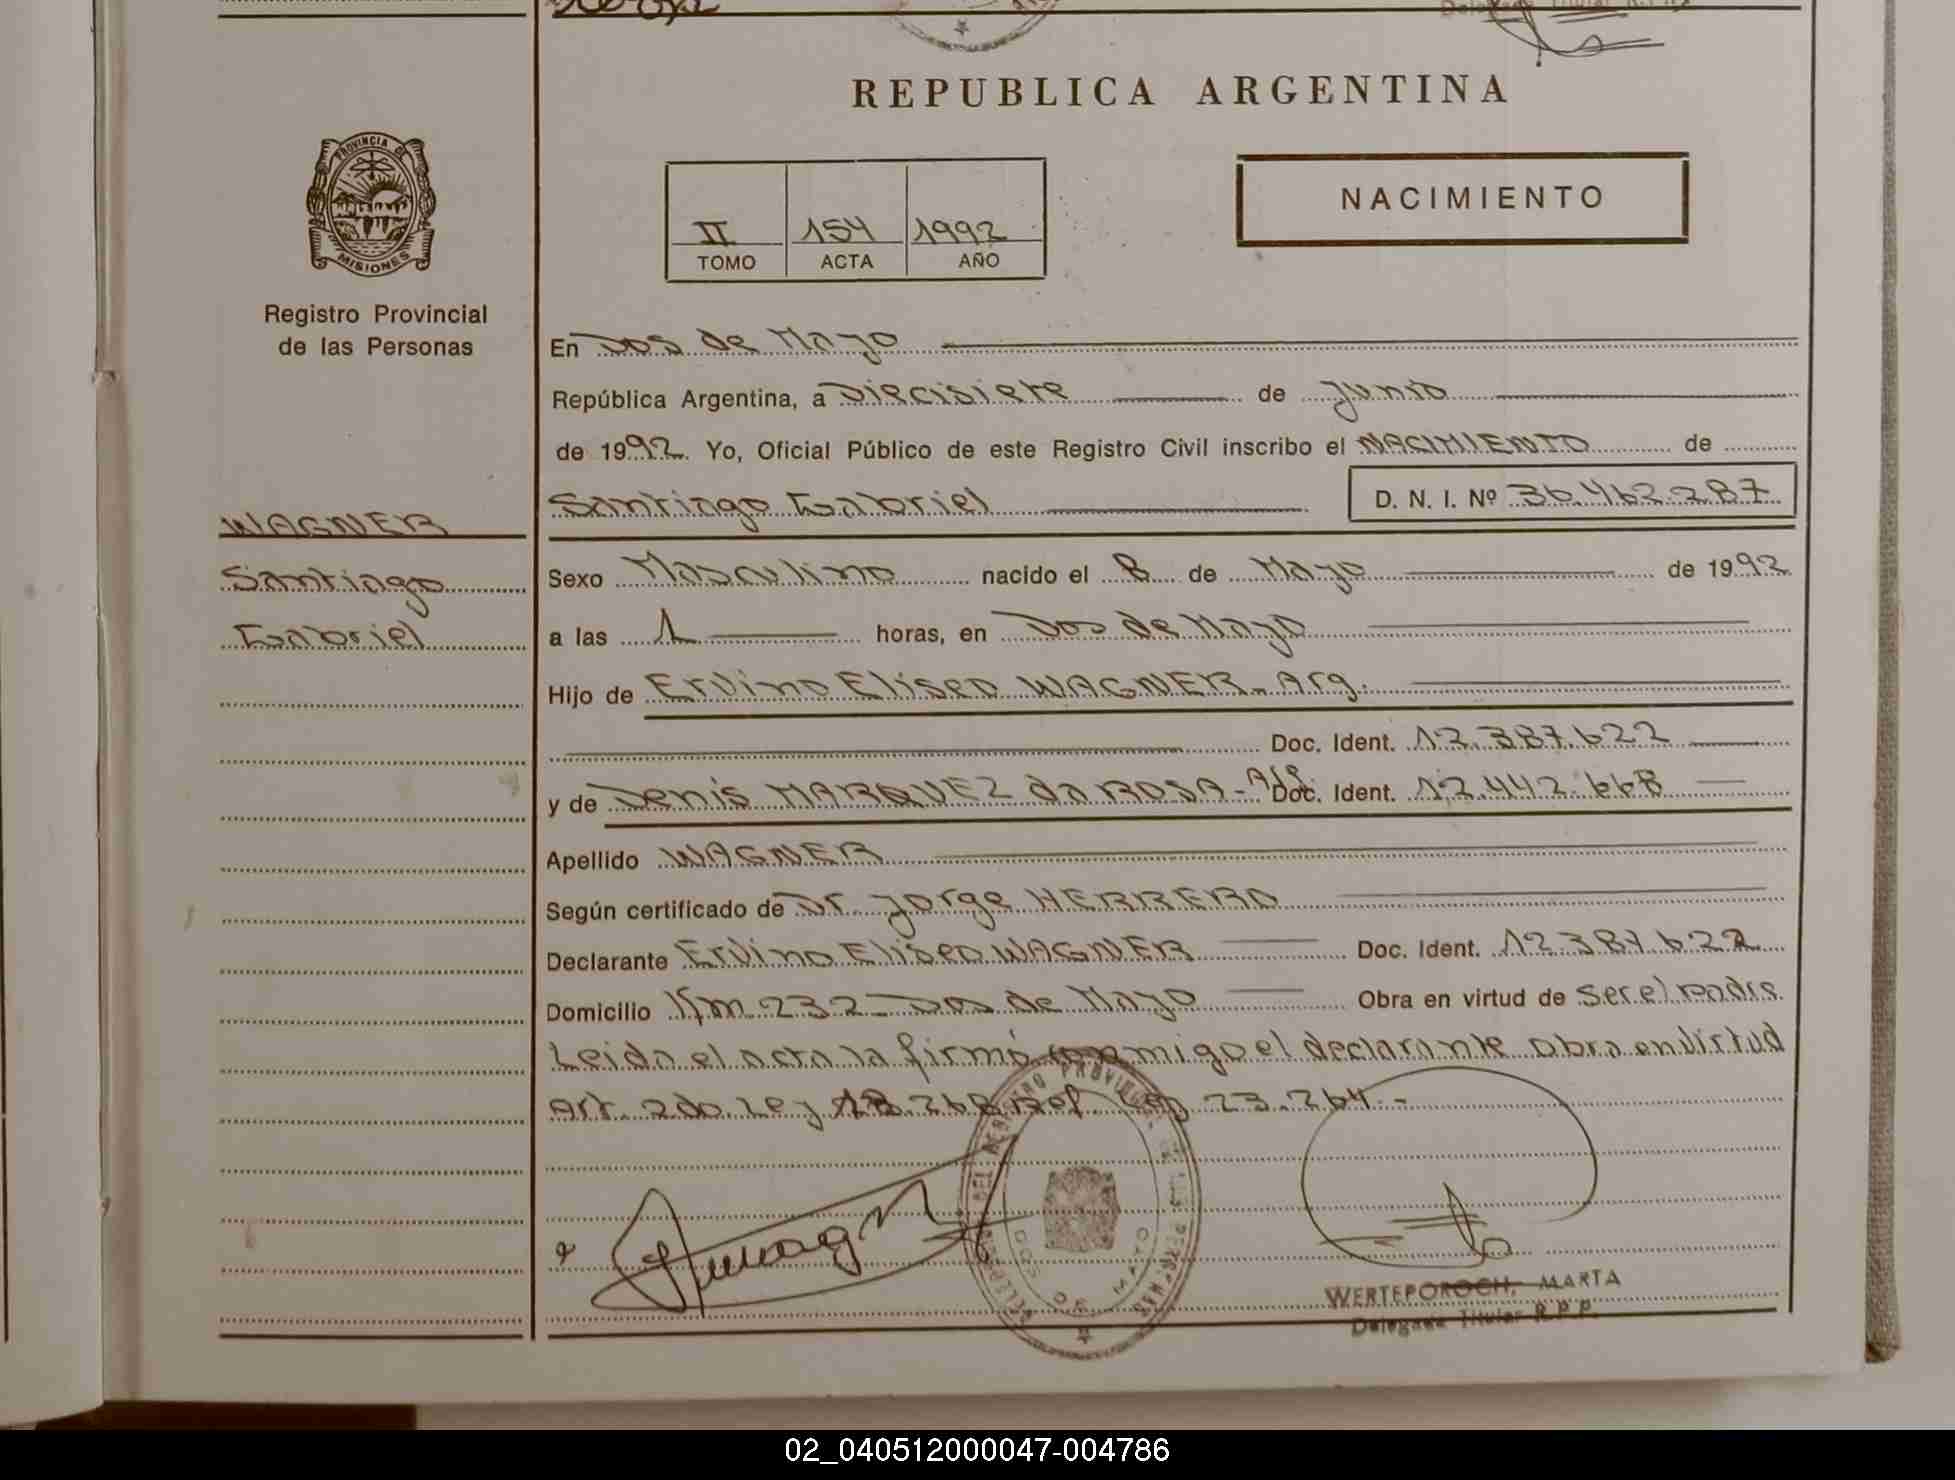 REPUBLICA ARGENTINA
PROVINCIA DE
MISIONES
II 154 1992
TOMO ACTA AÑO
NACIMIENTO
Registro Provincial
de las Personas
En Dos de Mayo
República Argentina, a Diecisiete de Junio
de 1992. Yo, Oficial Público de este Registro Civil inscribo el NACIMIENTO de
Santiago Gabriel D. N. I. Nº 36.462.287
WAGNER
Santiago
Gabriel
Sexo Masculino nacido el 8 de Mayo de 1992
a las 1 horas, en Dos de Mayo
Hijo de Ervino Eliseo WAGNER - Arg.
Doc. Ident. 12.387.622
y de Denis MARQUEZ da ROSA - Arg. Doc. Ident. 12.442.668
Apellido WAGNER
Según certificado de Dr. Jorge HERRERO
Declarante Ervino Eliseo WAGNER Doc. Ident. 12.387.622
Domicilio Km 232 - Dos de Mayo Obra en virtud de ser el padre
Leida el acta la firmó conmigo el declarante obra en virtud
Art. 2do Ley 18.248 Ref. Ley 23.264.-
DEL REGISTRO PROVINCIAL DE LAS PERSONAS
DOS DE MAYO
WERTEPOROCH, MARTA
Delegada Titular R.P.P.
02_040512000047-004786